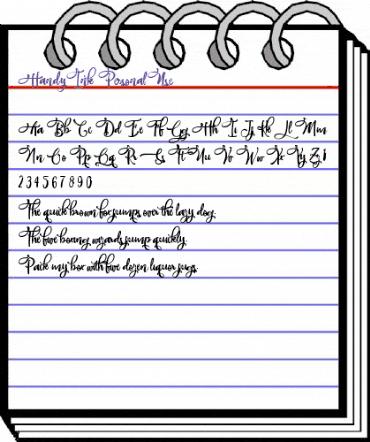 Handy Ink Personal Use
Aa Bb Cc Dd Ee Ff Gg Hh Ii Jj Kk Ll Mm
Nn Oo Pp Qq Rr Ss Tt Uu Vv Ww Xx Yy Zz 1
2 3 4 5 6 7 8 9 0
The quick brown fox jumps over the lazy dog.
The five boxing wizards jump quickly.
Pack my box with five dozen liquor jugs.